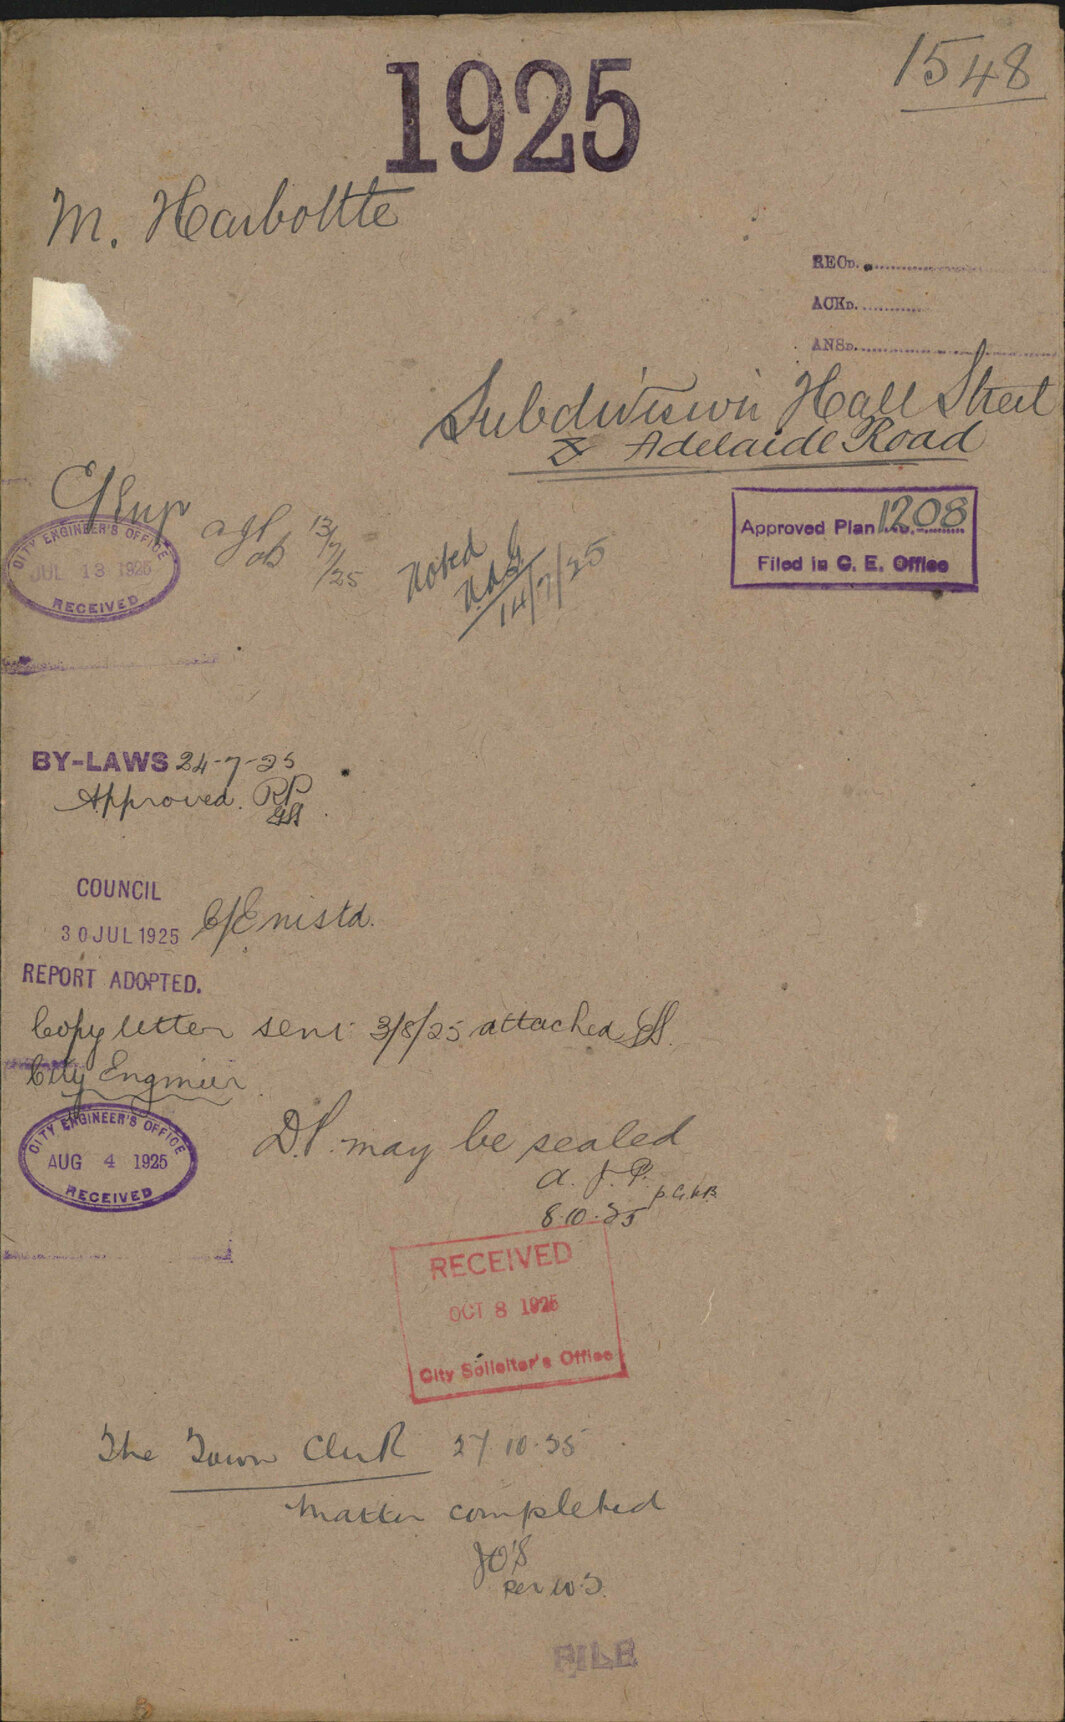 1548
1925
M. Harboltte
RECD.
ACKD.
ANSD.
Subdivision Hall Street
& Adelaide Road
Approved Plan No. 1208
Filed in C. E. Office
CITY ENGINEER'S OFFICE
JUL 13 1925
RECEIVED
13/7/25
Noted
14/7/25
BY-LAWS 24-7-25
Approved. RP
COUNCIL
30 JUL 1925
REPORT ADOPTED.
C/E nistd.
Copy letter sent 3/8/25 attached
City Engineer
CITY ENGINEER'S OFFICE
AUG 4 1925
RECEIVED
D.P. may be sealed
A. J. P.
p. G.W.B.
8.10.25
RECEIVED
OCT 8 1925
City Solicitor's Office
The Town Clerk 27.10.25
Matter completed
JO'S
per W.S.
FILE